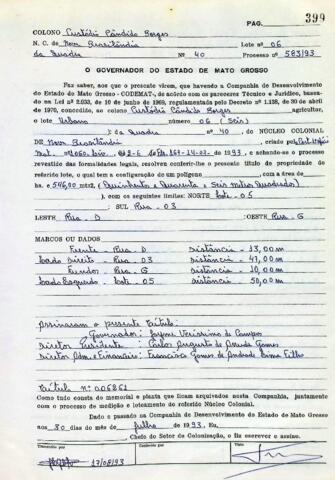 PAG. 399
COLONO Custódio Cândido Borges
N. C. de Nova Brasilândia Lote nº 06
da Quadra Nº 40 Processo nº 583/93
O GOVERNADOR DO ESTADO DE MATO GROSSO
Faz saber, aos que o presente virem, que havendo a Companhia de Desenvolvimento
do Estado de Mato Grosso - CODEMAT-, de acordo com os pareceres Técnico e Jurídico, basea-
do na Lei nº 2.933, de 10 de junho de 1969, regulamentada pelo Decreto n° 1.138, de 30 de abril
de 1970, concedido, ao colono Custódio Cândido Borges agricultor,
o lote Urbano número 06 (Seis)
da Quadra nº 40, DO NÚCLEO COLONIAL
DE Nova Brasilândia, criado por
Mat. nº 1060 de 14-02-1993, e achando-se o processo
revestido das formalidades legais, resolven conferir-lhe o presente título de propriedade do
referido lote, o qual tem a configuração de um polígono com a área de
ha 546,00 mts2, (Quinhentos e Quarenta e Seis metros Quadrados)
), com os seguintes limites: NORTE Lote - 05
SUL Rua - 03
LESTE Rua - D OESTE Rua - G
MARCOS OU DADOS
Frente - Rua - D Distância - 13,00 m
Lado Direito - Rua - 03 Distância - 47,00 m
Fundos - Rua - G Distância - 10,00 m
Lado Esquerdo - Lote - 05 Distância - 50,00 m
Assinaram o presente Título:
Governador: Jayme Veríssimo de Campos
Diretor Presidente: Carlos Augusto de Arruda Gomes
Diretor Adm. e Financeiro: Francisco Gomes de Andrade Lima Filho
Título nº 006861
Como tudo consta do memorial e planta que ficam arquivados nesta Companhia, juntamente
com o processo de medição e loteamento do referido Núcleo Colonial.
Dado e passado na Companhia de Desenvolvimento do Estado de Mato Grosso
aos 30 dias do mês de julho de 1993, Eu,
Chefe do Setor de Colonização, o fiz escrever e assino.
Transcrito por Conferido por Visto
17/08/93